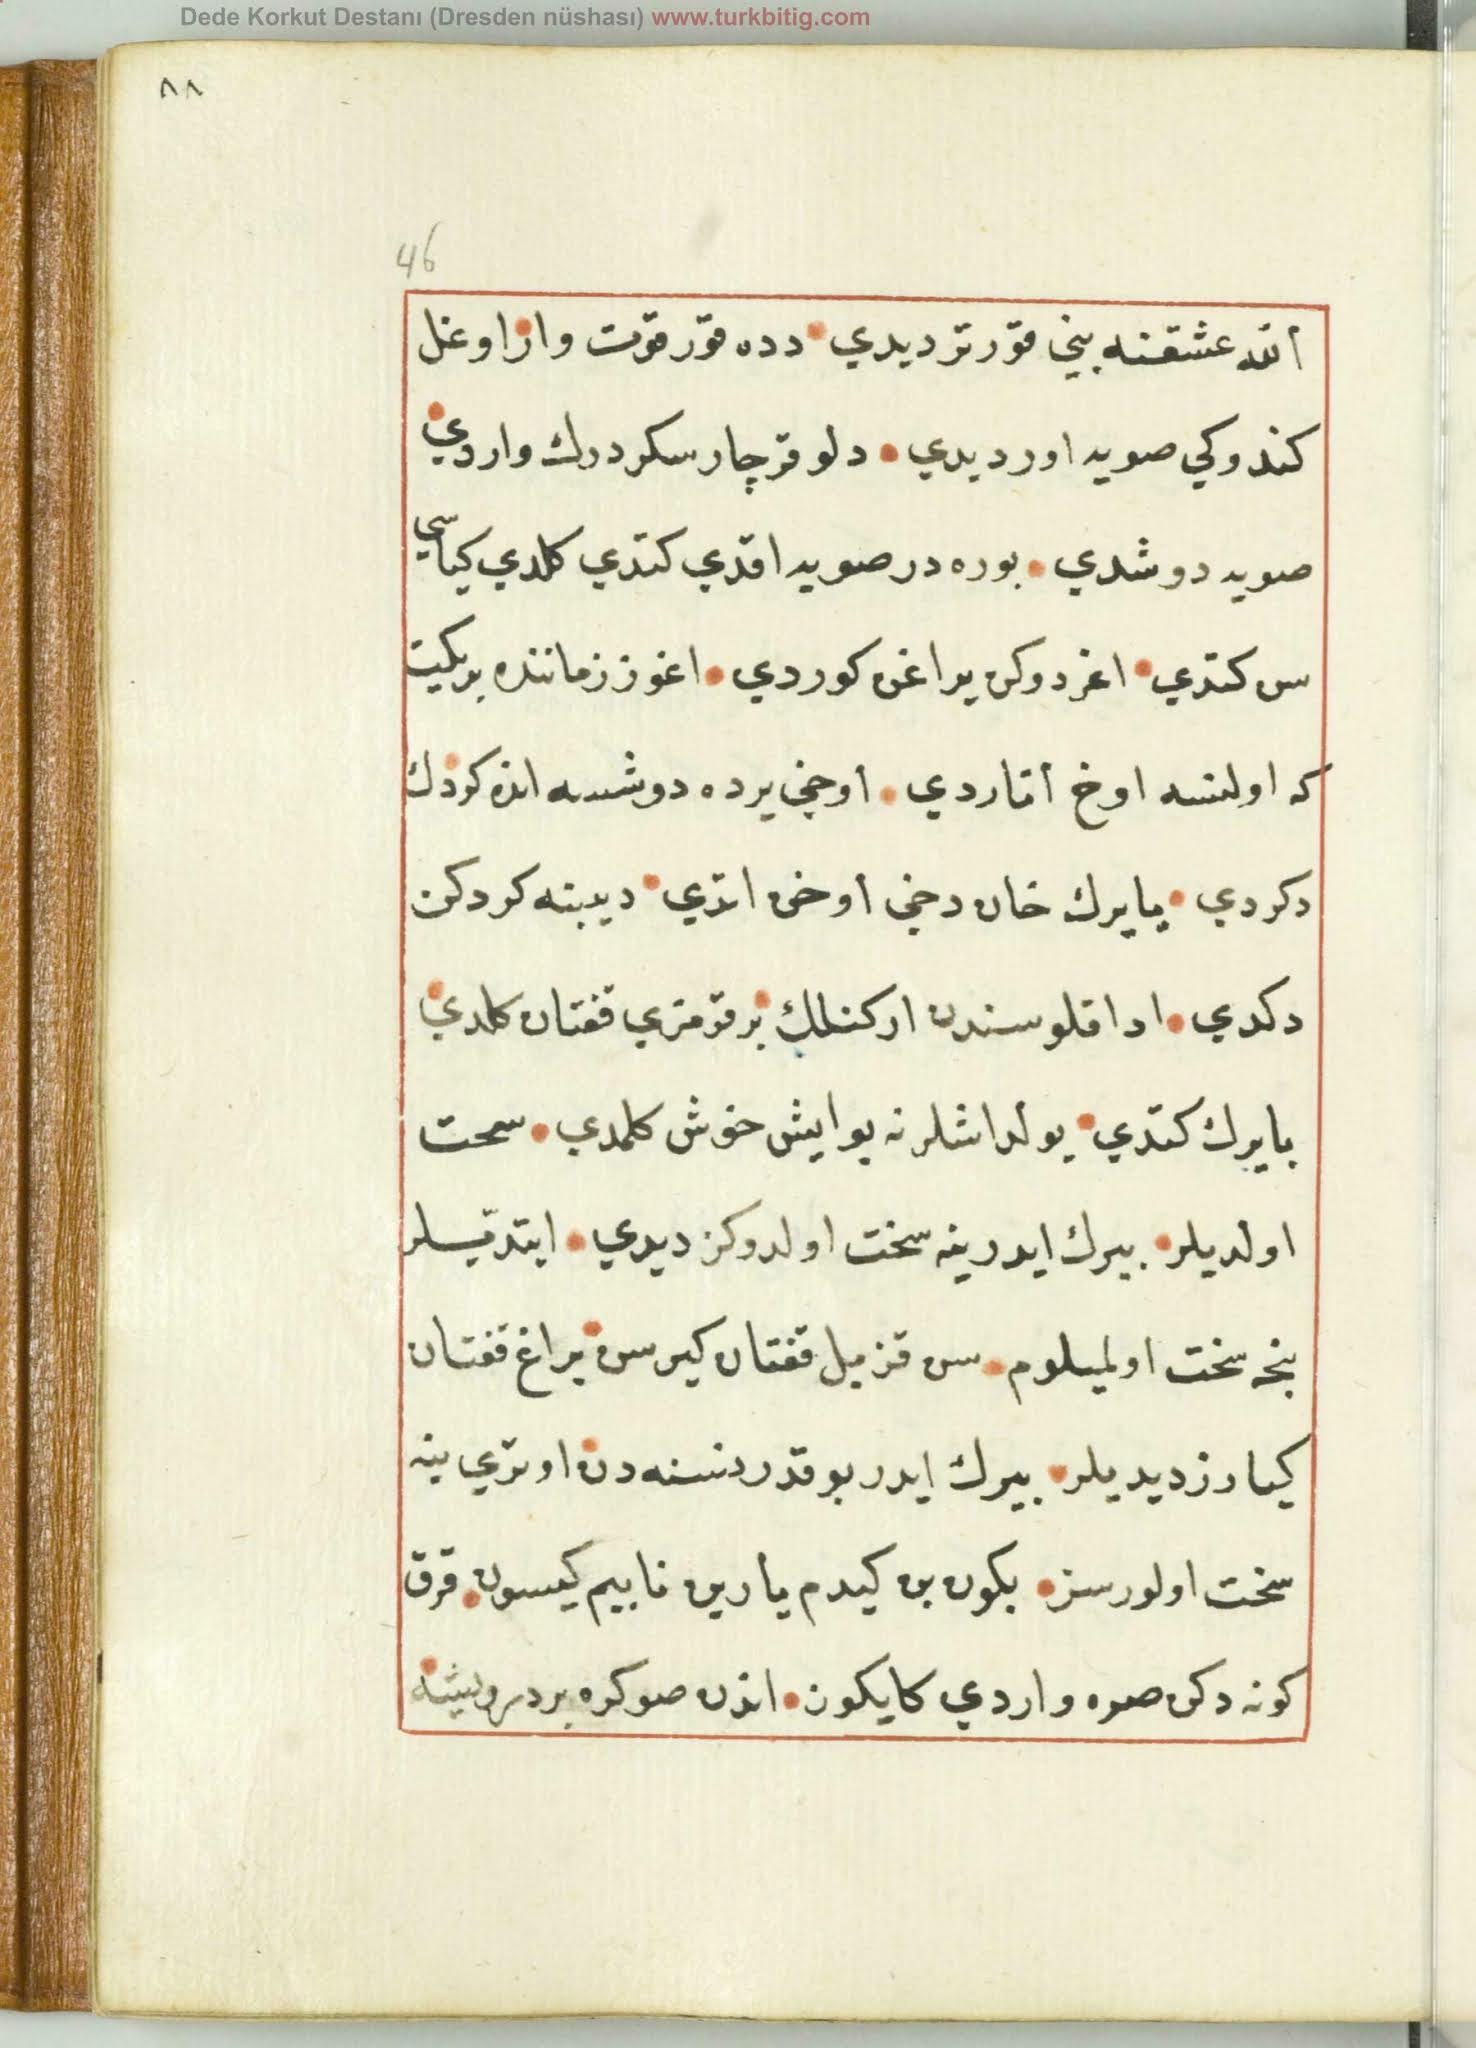 Dede Korkut Destanı (Dresden nüshası) www.turkbitig.com
٨٨
46
الله عشقنه بني قورتر ديدي • دده قورقوت وار اوغل
كندوكي صويه اور ديدي • دلو قرچار سكردرك واردي
صويه دوشدي • بوره در صويه اقدي كتدي كلدي كياسي
س كتدي • اغر دوكن يراغن كوردي • اغوز زماننده بر يكيت
كه اولنسه اوخ اتاردي • اوخي يرده دوشسه انده كردك
دكردي • بايرك خان دخي اوخن اتدي • ديبنه كردكن
دكدي • اداقلوسندن اركنلك بر قرمزي قفتان كلدي
بايرك كيدي • يولداشلرنه بو ايش خوش كلمدي • سحت
اولديلر • بيرك ايدر ينه سخت اولدوكز ديدي • ايتديلر
نجه سخت اولميلوم • سن قزيل قفتان كيرسن بز اغ قفتان
كياروز ديديلر • بيرك ايدر بو قدر نسنه دن اوتري ينه
سخت اولورسز • بكون بن كيدم يارين نايبم كيسون • قرق
كونه دكن صره واردي كايكون • اندن صوكره بر درويشه